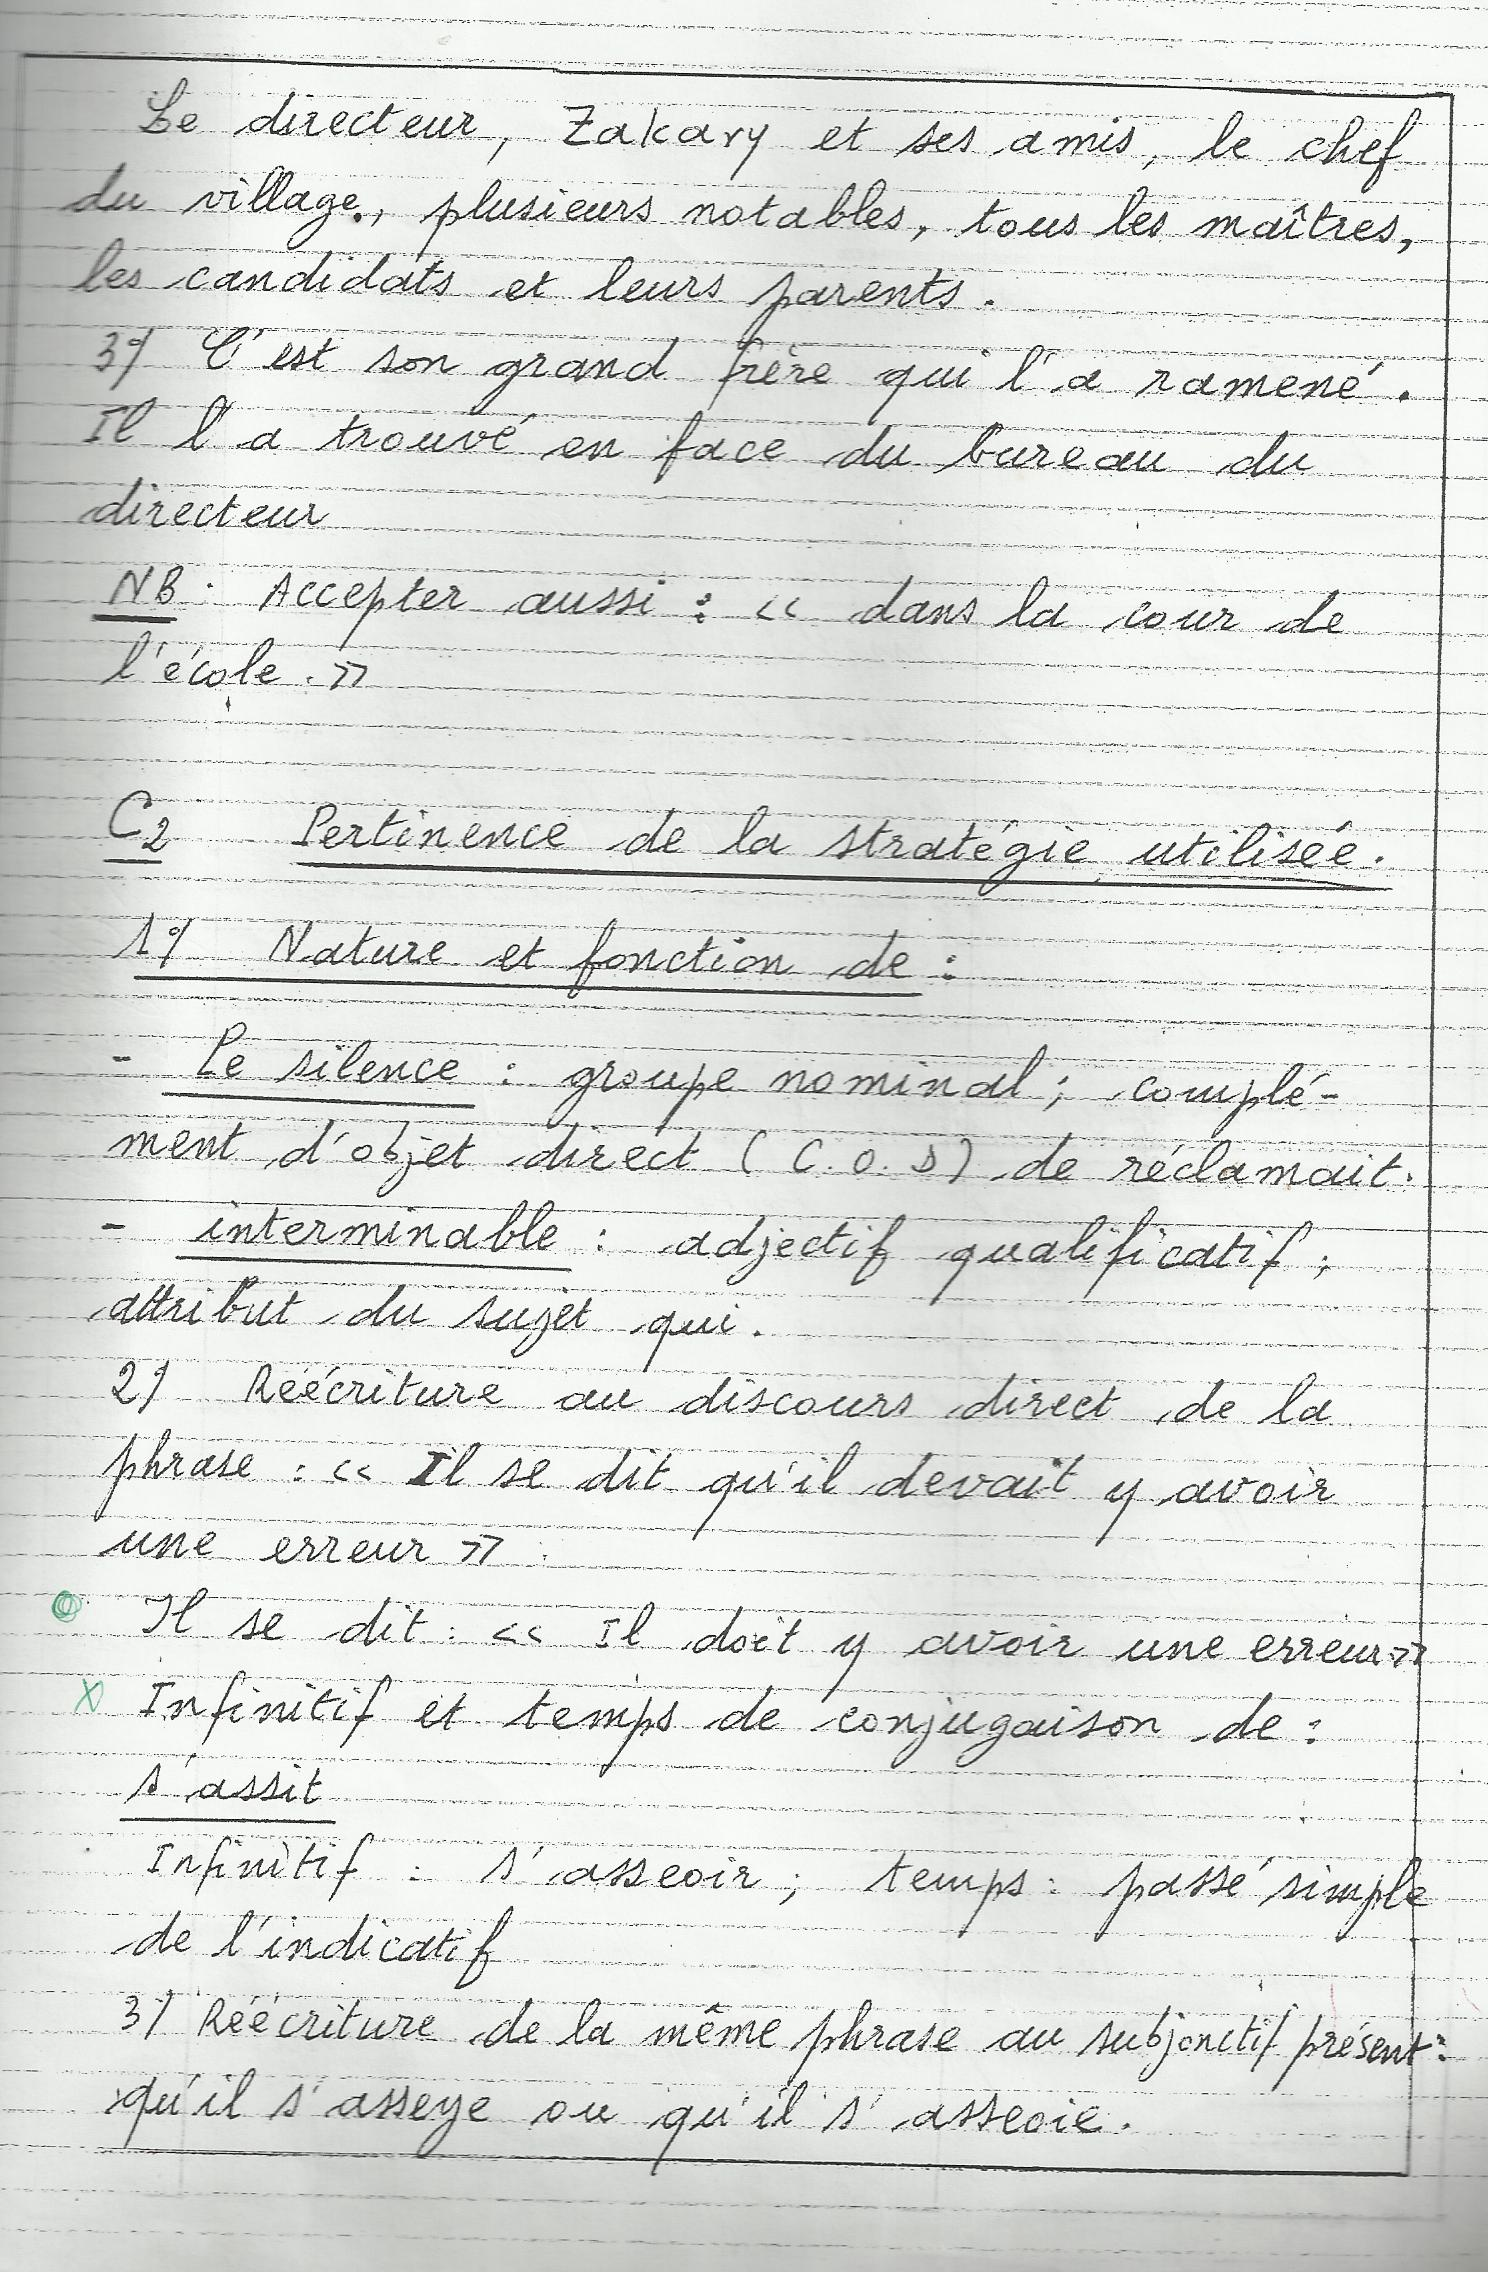 Le directeur, Zakary et ses amis, le chef
du village., plusieurs notables, tous les maîtres,
les candidats et leurs parents.
3°/ C'est son grand frère qui l'a ramené.
Il l'a trouvé en face du bureau du
directeur
NB: Accepter aussi : << dans la cour de
l'école. >>
C2 Pertinence de la stratégie utilisée.
1°/ Nature et fonction de :
- Le silence : groupe nominal ; complé-
ment d'objet direct (C.O.D) de réclamait.
- interminable : adjectif qualificatif ;
attribut du sujet qui.
2°/ Réécriture au discours direct de la
phrase : << Il se dit qu'il devait y avoir
une erreur >> :
Il se dit : << Il doit y avoir une erreur >>
X Infinitif et temps de conjugaison de :
s'assit
Infinitif : s'asseoir ; temps : passé simple
de l'indicatif
3°/ Réécriture de la même phrase au subjonctif présent :
qu'il s'asseye ou qu'il s'asseoie.